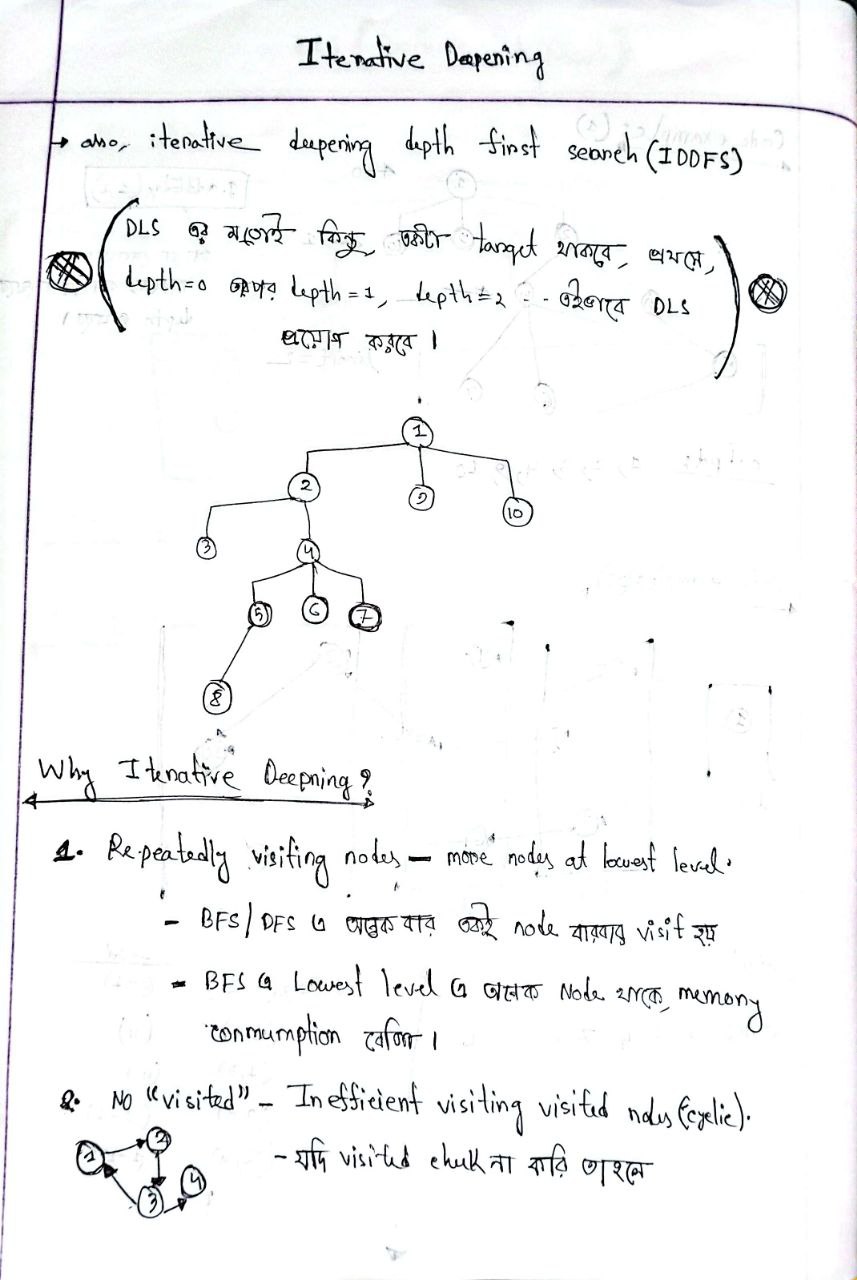 Iterative Deepening
→ also, iterative deepening depth first search (IDDFS)
DLS এর মতোই কিন্তু, একটা target থাকবে, প্রথমে,
depth=0 তারপর depth = 1, depth = 2 - - এইভাবে DLS
প্রয়োগ করবে ।
1
2
9
10
3
4
5
6
7
8
Why Iterative Deepning ?
1. Repeatedly visiting nodes — more nodes at lowest level.
- BFS/DFS এ অনেক বার একই node বারবার visit হয়
- BFS এ Lowest level এ অনেক Node থাকে, memory
conmumption বেশি ।
2. No "visited" - Inefficient visiting visited nodes (cyclic).
- যদি visited chek না করি তাহলে
1
2
3
4